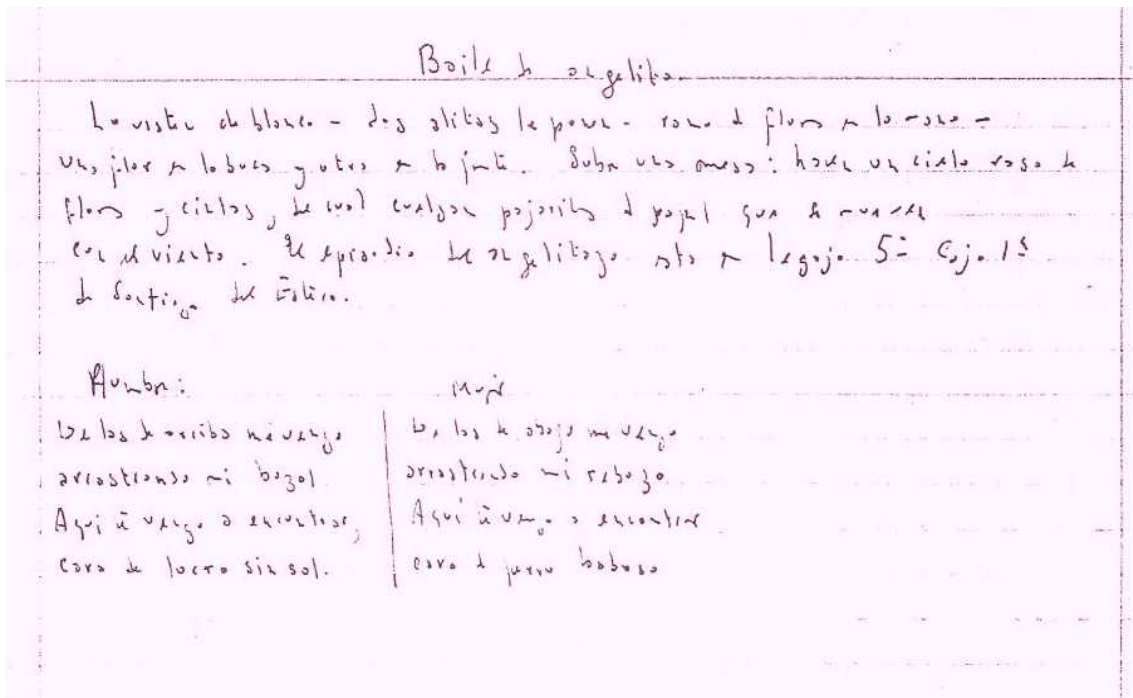 Baile de angelito.
Lo visten de blanco - dos alitas le ponen - ramo d flores en la mano -
una flor en la boca y otra en la frente. Sobre una mesa: hacen un cielo raso de
flores y cintas, del cual cuelgan pajaritos d papel que se mueven
con el viento. El episodio del angelito esta en legajo 5º Caja 1ª
de Santiago del Estero.
Hombre:
De los de arriba me vengo
arrastrando mi bozal
Aquí te vengo a encontrar,
cara de locro sin sal.
Mujer
De los de abajo me vengo
arrastrando mi rebozo
Aquí te vengo a encontrar
cara d perro baboso